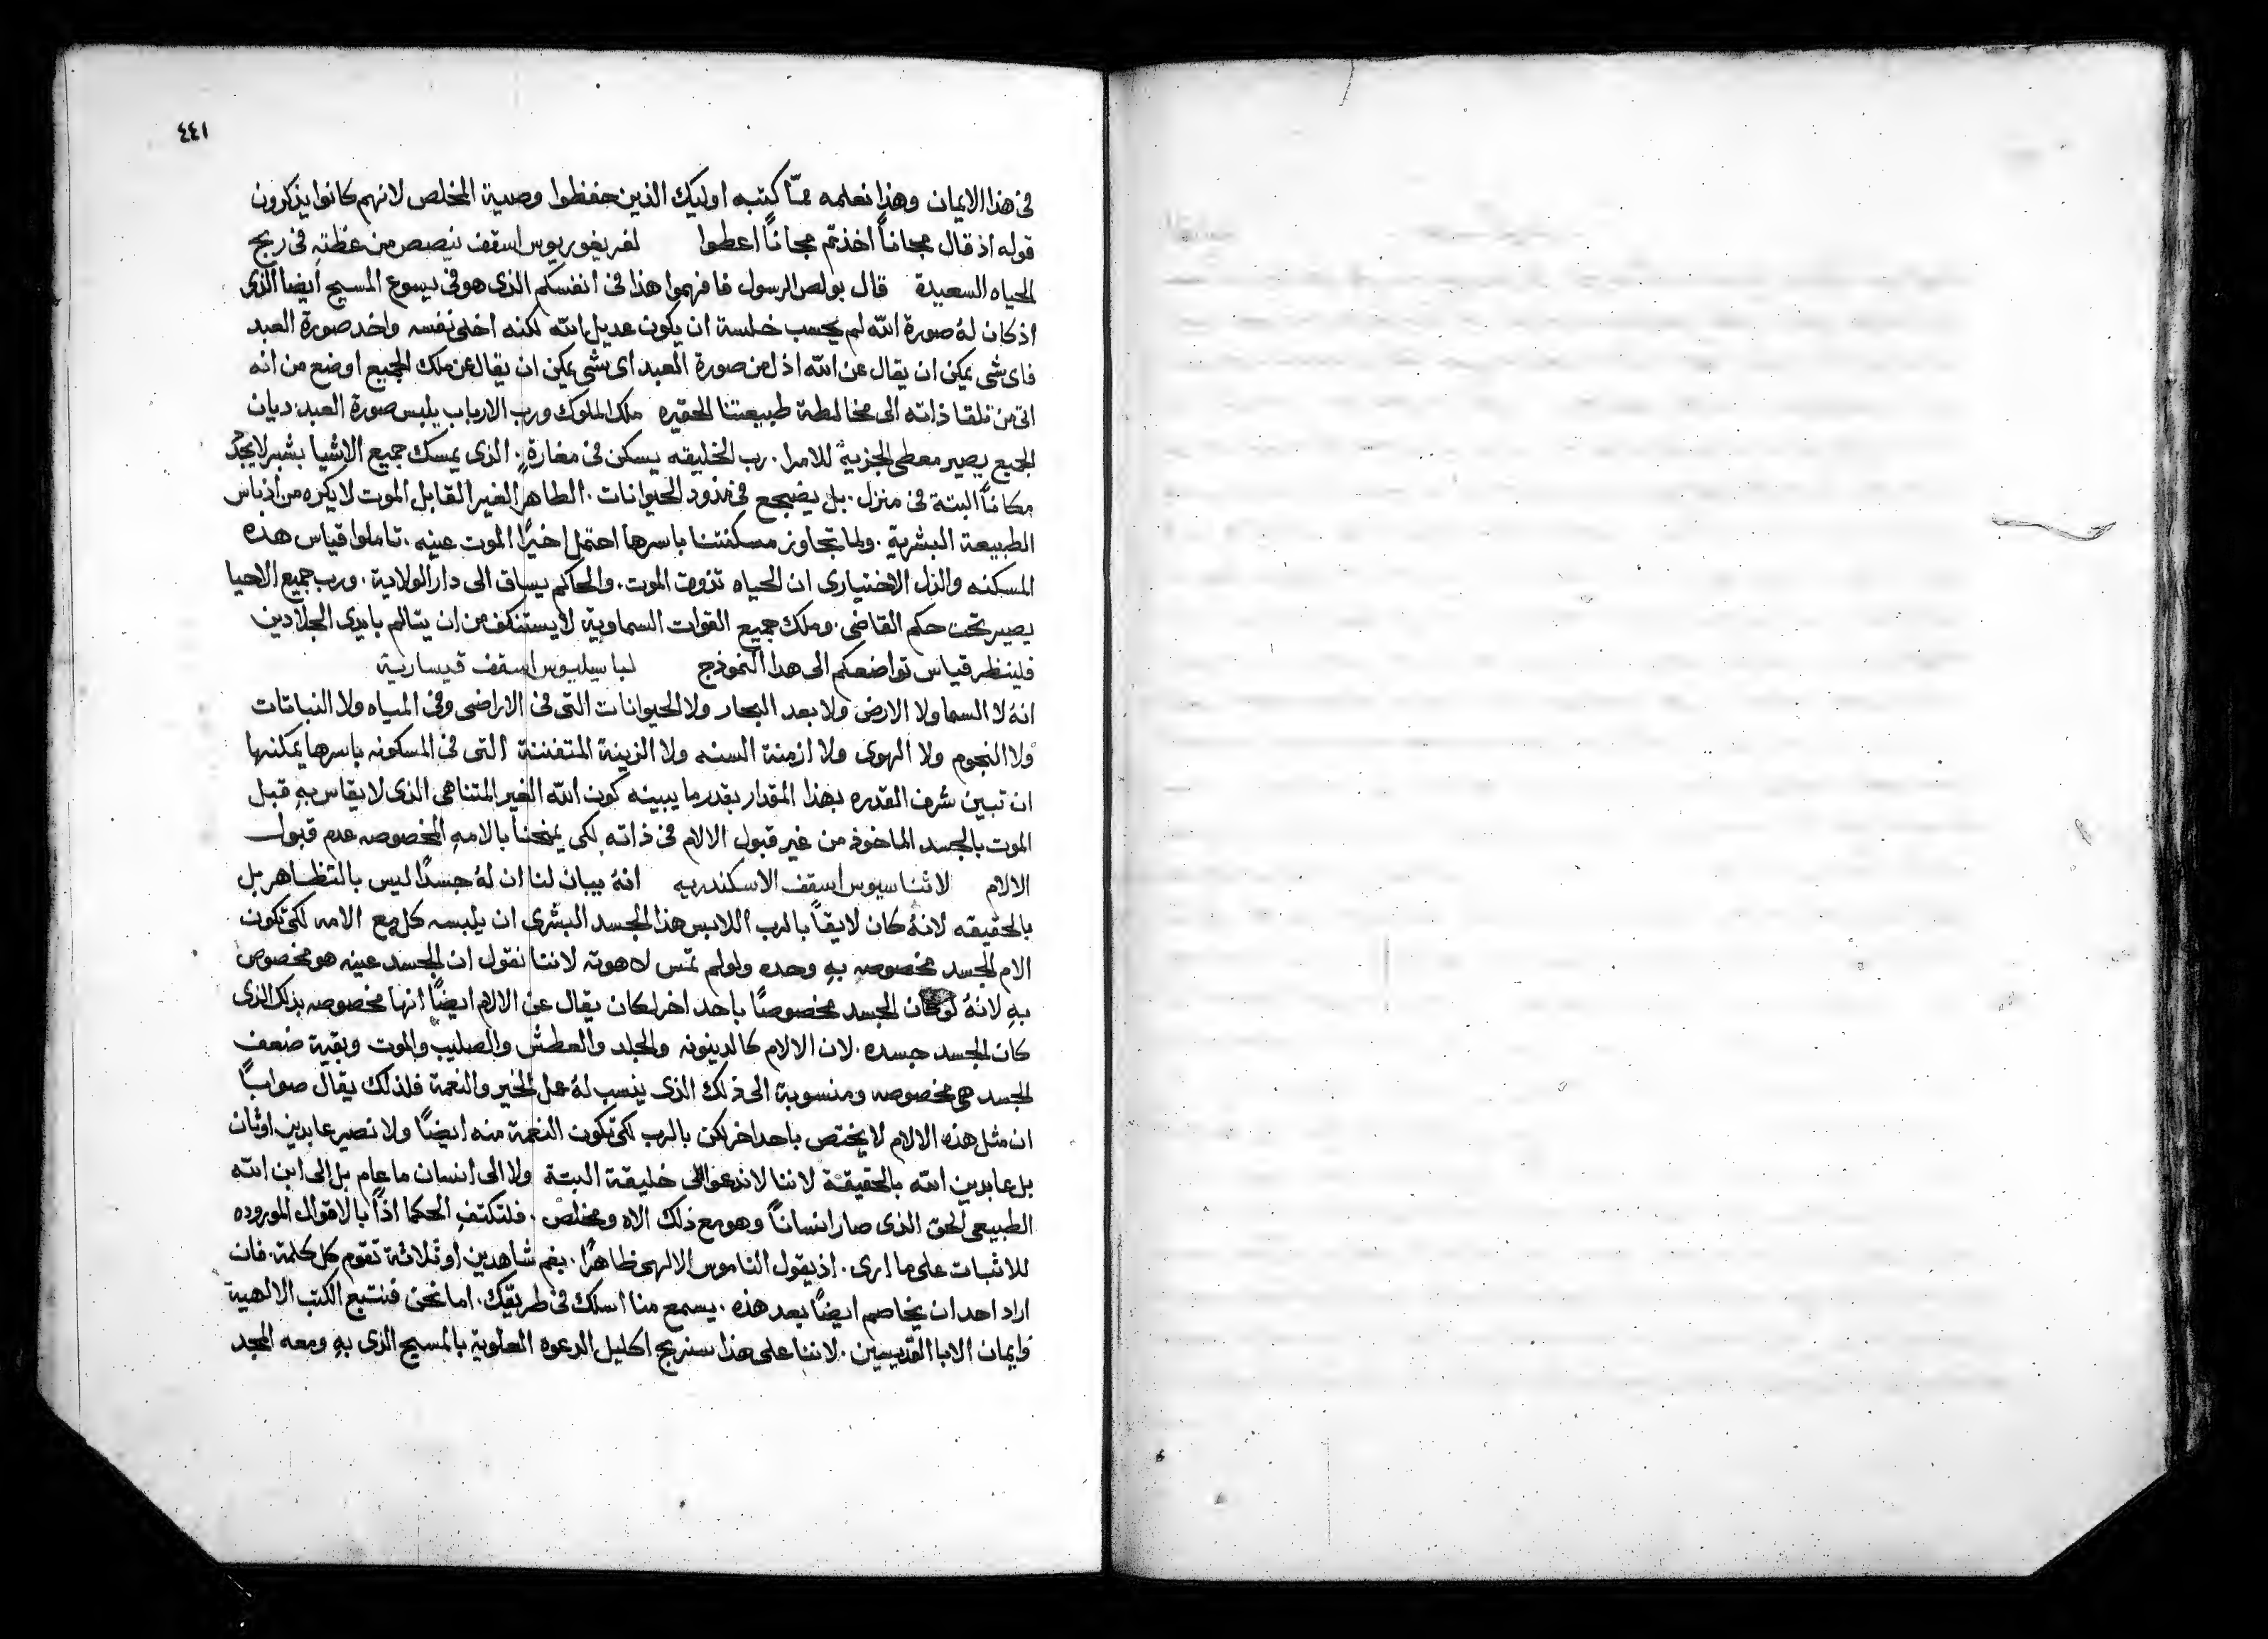 ٤٤١
فى هذا الايمان وهذا نعلمه ممّا كتبه اوليك الذين حفظوا وصية المخلص لانهم كانوا يذكرون
قوله اذ قال مجاناً اخذتم مجاناً اعطوا لغريغوريوس اسقف نيصص من عظتهِ فى ربح
الحياه السعيدة قال بولص الرسول فافهموا هذا فى انفسكم الذى هو فى يسوع المسيح ايضا الذى
اذ كان لهُ صورة الله لم يحسب خلسة ان يكون عديل الله لكنه اخلى نفسه واخد صورة العبد
فاى شى يمكن ان يقال عن الله اذل من صورة العبد اى شى يمكن ان يقال عن ملك الجميع اوضع من انه
اتى من تلقا ذاته الى مخالطة طبيعتنا الحقيره ملك الملوك ورب الارباب يلبس صورة العبد. ديان
الجميع يصير معطى الجزية للامرا. رب الخليقه يسكن فى مغارة. الذى يمسك جميع الاشيا بشبر لا يجد
مكاناً البتة فى منزل. بل يضجع فى مذود الحيوانات. الطاهر الغير القابل الموت لا يكره من ادناس
الطبيعة البشرية. ولما تجاوز مسكنتنا باسرها احتمل اخيرًا الموت عينه. تاملوا قياس هده
المسكنه والذل الاختيارى ان الحياه تذوق الموت. والحاكم يساق الى دار الولاية. ورب جميع الاحيا
يصير تحت حكم القاضى. وملك جميع القوات السماوية لا يستنكف من ان يتالم بايدى الجلادين
فلينظر قياس تواضعكم الى هدا النموذج لباسيليوس اسقف قيسارية
انهُ لا السما ولا الارض ولا بعد البحار ولا الحيوانات التى فى الاراضى وفى المياه ولا النباتات
ولا النجوم ولا الهوى ولا ازمنة السنه ولا الزينة المتفننة التى فى المسكونه باسرها يمكنها
ان تبين شرف القدره بهذا المقدار بقدر ما يبينه كون الله الغير المتناهى الذى لا يقاس بهِ قبل
الموت بالجسد الماخوذ من غير قبول الالام فى ذاته لكى يمنحنا بالامهِ المخصوصه عدم قبول
الالام لاثناسيوس اسقف الاسكندريه انهُ يبان لنا ان لهُ جسدًا ليس بالتظاهر بل
بالحقيقه لانهُ كان لايقاً بالرب اللابس هذا الجسد البشرى ان يلبسه كل مع الامه لكى تكون
الام الجسد مخصوصه بهِ وحده ولو لم تمس لاهوته لاننا نقول ان الجسد عينه هو مخصوص
بهِ لانهُ لو كان الجسد مخصوصًا باحد اخر لكان يقال عن الالام ايضًا انها مخصوصه بذلك الذى
كان الجسد جسده. لان الالام كالدينونه والجلد والعطش والصليب والموت وبقية ضعف
الجسد هى مخصوصه ومنسوبة الى ذلك الذى ينسب لهُ عمل الخير والنعمة فلذلك يقال صوابًا
ان مثل هذه الالام لا يختص باحد اخر لكن بالرب لكى تكون النعمة منه ايضًا ولا نصير عابدين اوثان
بل عابدين الله بالحقيقة لاننا لا ندعوا الى خليقة البتة ولا الى انسان ما عام بل الى ابن الله
الطبيعى الحق الذى صار انساناً وهو مع ذلك الاه ومخلص. فلتكتفِ الحكما اذاً بالاقوال الموروده
للاثبات على ما ارى. اذ يقول الناموس الالهى ظاهرًا. بفم شاهدين او ثلاثة تقوم كل كلمة. فان
اراد احد ان يخاصم ايضًا بعد هذه. يسمع منا اسلك فى طريقك. اما نحن فنتبع الكتب الالهية
وايمان الابا القديسين. لاننا على هذا سنربح اكليل الدعوه العلوية بالمسيح الذى بهِ ومعه المجد